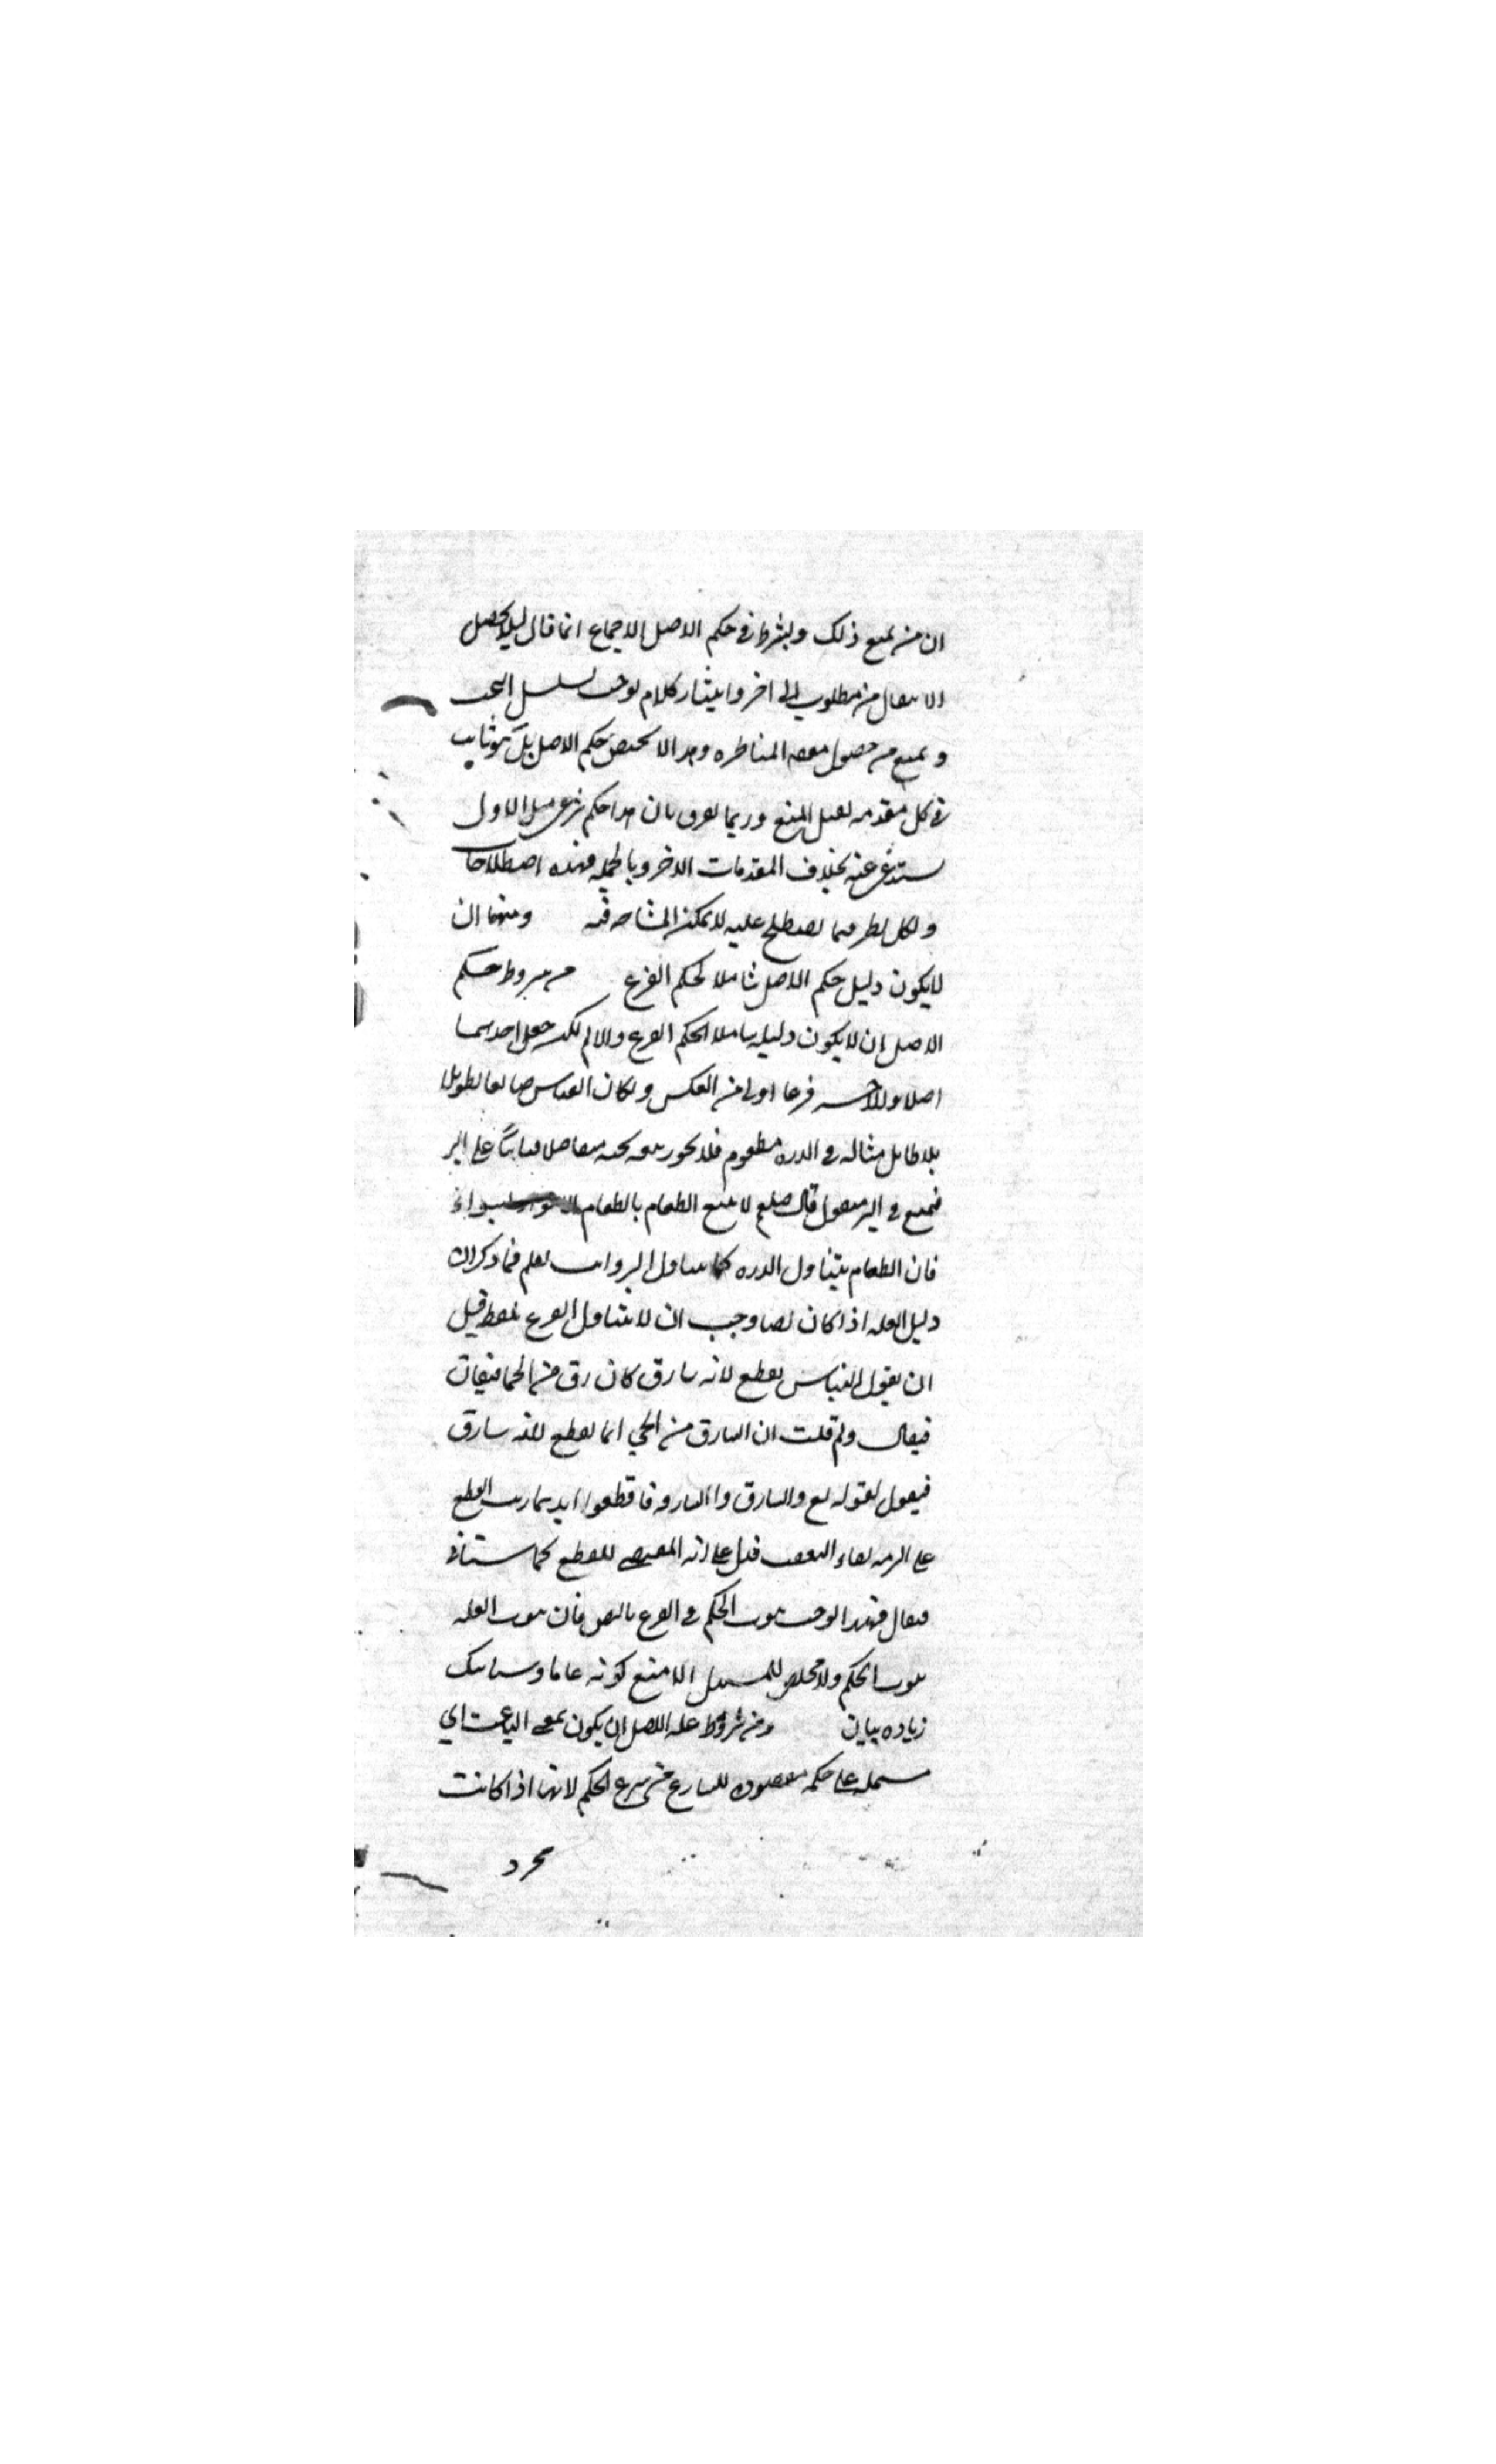 ان من يمنع ذلك ويشترط في حكم الاصل الاجماع انما قال ليلا يحصل
الانتقال من مطلوب الى اخر وانتشار كلام يوجب تسلسل البحث
ويمنع من حصول مقصود المناظره وهذا لا يختص حكم الاصل بل هو ثابت
في كل مقدمه تقبل المنع وربما يفرق بان هذا حكم شرعي مثل الاول
يستدعي بخلاف المقدمات الاخر وبالجمله فهذه اصطلاحات
ولكل نظر فيما يصطلح عليه لا يمكن المشاحه فيه ومنها ان
لا يكون دليل حكم الاصل شاملا لحكم الفرع من شروط حكم
الاصل ان لا يكون دليله شاملا لحكم الفرع والا لم يكن جعل احدهما
اصلا والاخر فرعا اولى من العكس ولكان القياس ضايعا تطويلا
بلا طايل مثاله في الدره مطعوم فلا يجوز بيعه بجنسه متفاضلا قياسا على البر
فيمنع في البر فيقول قال صلعم لا تبيع الطعام بالطعام
فان الطعام يتناول الدره كما يتناول البر وانت تعلم مما ذكر ان
دليل العله اذا كان نصا وجب ان لا يتناول الفرع بلفظه قبل
ان يقول النباش يقطع لانه سارق كالسارق من الحي فيقال
فيقال ولم قلت ان السارق من الحي انما يقطع لانه سارق
فيقول لقوله تع والسارق والسارقه فاقطعوا ايديهما رتب القطع
على السرقه بفاء التعقيب فدل على انه المقتضي للقطع كما ستاتي
فيقال فهذا يوجب ثبوت الحكم في الفرع بالنص فان ثبوت العله
ثبوت الحكم ولا مخلص للمستدل الا منع كونه عاما وسياتيك
زياده بيان ومن شروط عله الاصل ان يكون بمعنى الباعث اي
مشتمله على حكمه مقصوده للشارع من شرع الحكم لانها اذا كانت
مجرد